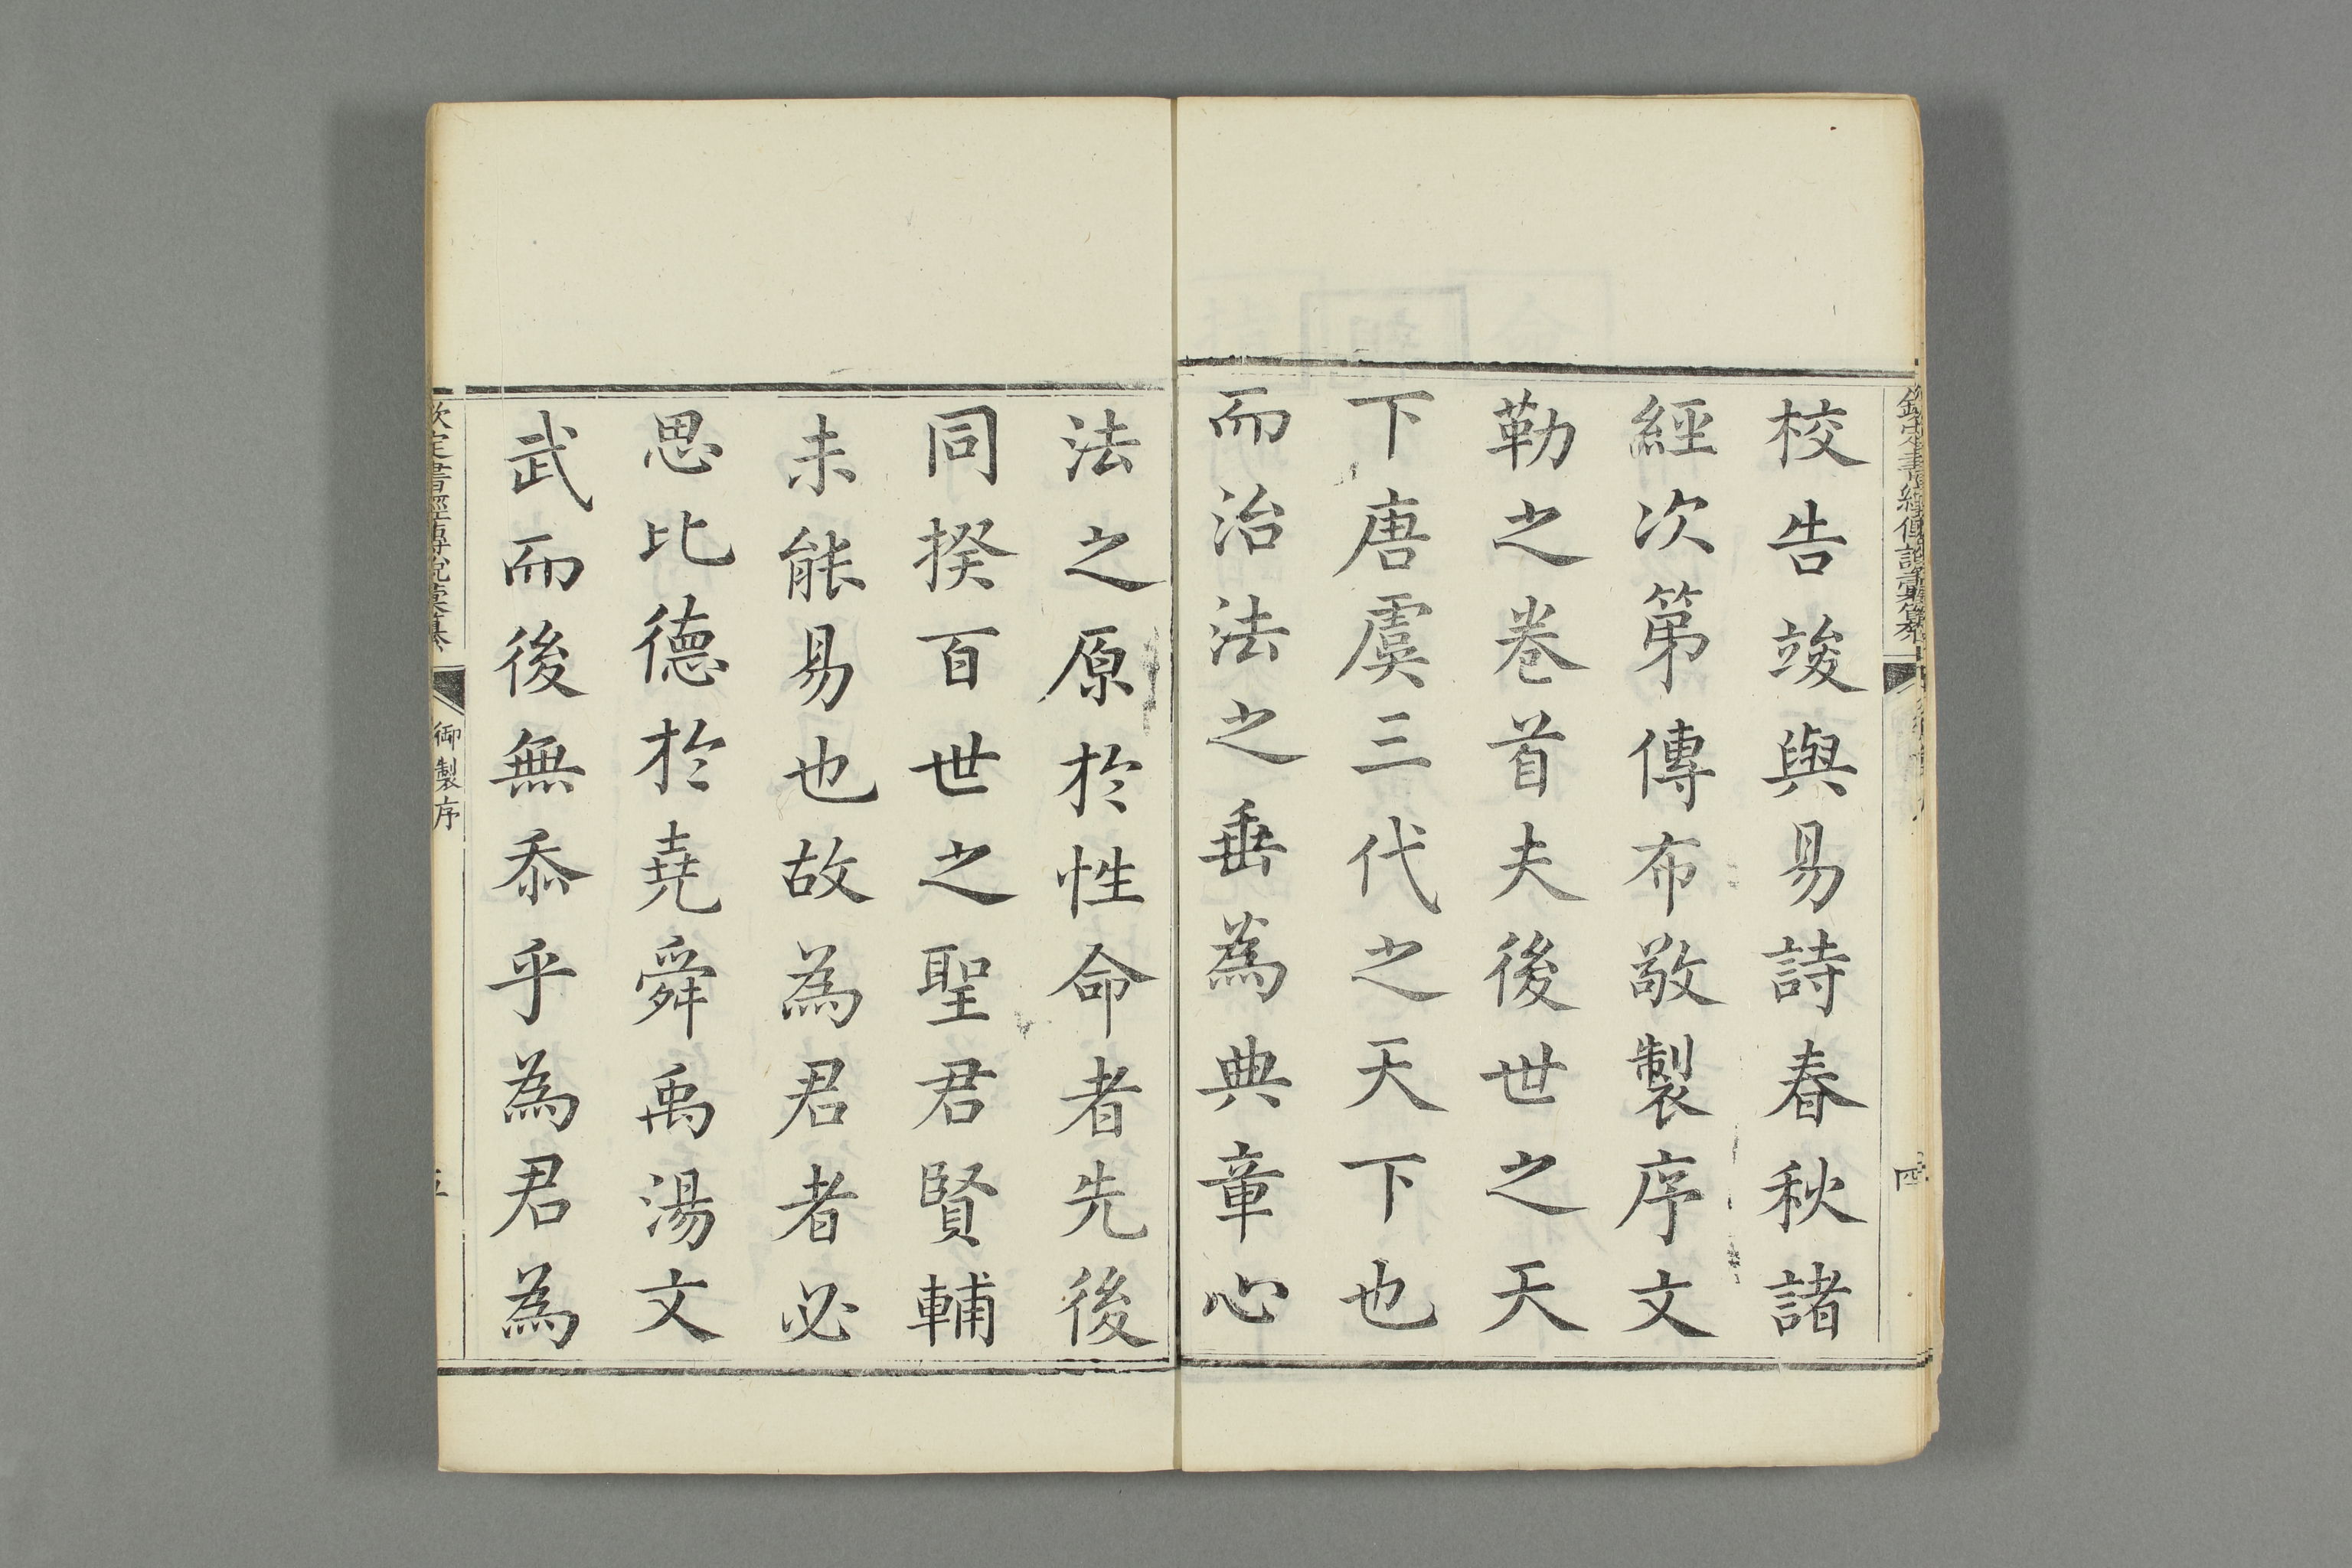 校告竣與易詩春秋諸
經次第傳布敬製序文
勒之卷首夫後世之天
下唐虞三代之天下也
而治法之垂為典章心
法之原於性命者先後
同揆百世之聖君賢輔
未能易也故為君者必
思比德於堯舜禹湯文
武而後無忝乎為君為
欽定書經傳說彙纂
御製序
四